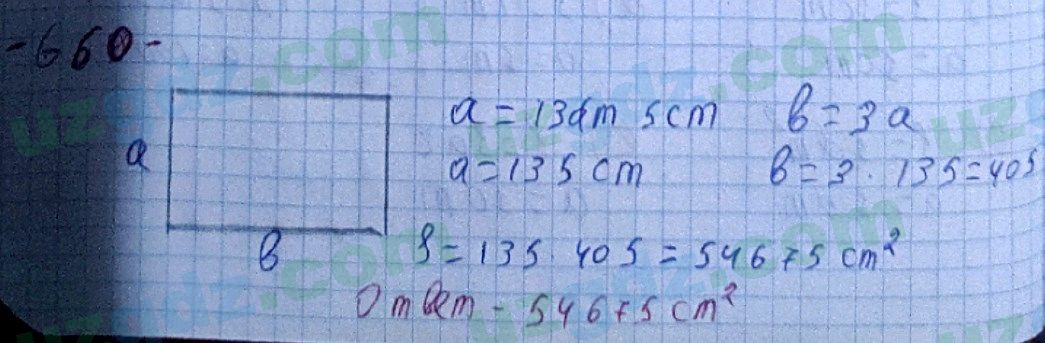 -660-
a = 13dm 5cm b = 3a
a
a = 135 cm b = 3 · 135 = 405
b
S = 135 · 405 = 54675 cm²
Ответ - 54675 cm²
uzgdz.com